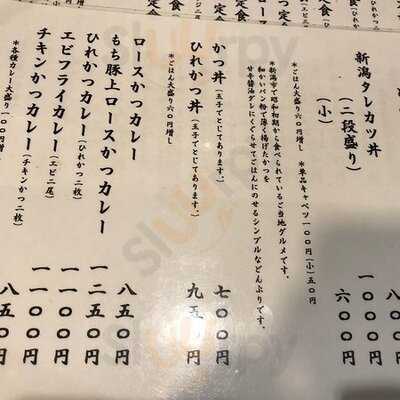 新潟タレカツ丼
（二段盛り）
（小）
八〇
一〇〇
六〇〇円
＊ごはん大盛り六〇円増し　＊単品キャベツ一〇〇円（小）五〇円
＊新潟市で昭和初期から食べられているご当地グルメです。
細かいパン粉で薄く揚げたかつを
甘辛醤油ダレにくぐらせてごはんにのせるシンプルなどんぶりです。
かつ丼（玉子でとじてあります。）　七〇〇円
ひれかつ丼（玉子でとじてあります。）　九五〇円
＊ごはん大盛り六〇円増し
ロースかつカレー　八五〇円
もち豚上ロースかつカレー　一二五〇円
ひれかつカレー（ひれかつ二枚）　一一〇〇円
エビフライカレー（エビ二尾）　一一〇〇円
チキンかつカレー（チキンかつ二枚）　八五〇円
＊各種カレー大盛り一〇〇円増し